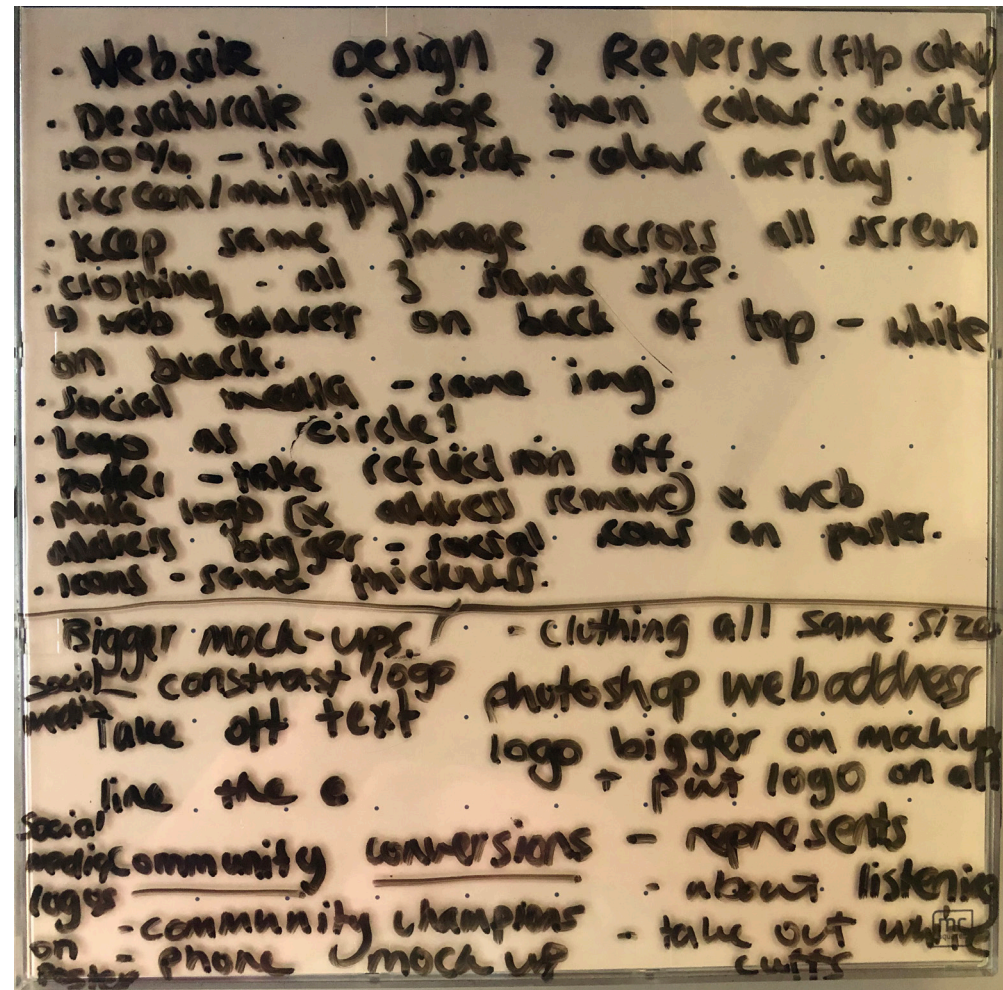 · Website Design ? Reverse (flip colour)
· Desaturate image then colour ; opacity
100% - img desat - colour overlay
(screen/multiply).
· Keep same image across all screen
· clothing - all 3 same size.
↳ web address on back of top - white
on black.
· Social media - same img.
· Logo as circle?
· Poster - take reflection off.
· Make logo (x address remove) x web
address bigger - social icons on poster.
· Icons - same thickness.
Bigger mock-ups.
social media constrast logo
Take off text
line the e
social media logos on Poster
Community conversions - represents
- about listening
- community champions
- phone mock up
- clothing all same size
photoshop web address
logo bigger on mockup
+ put logo on all
- take out white
cuffs